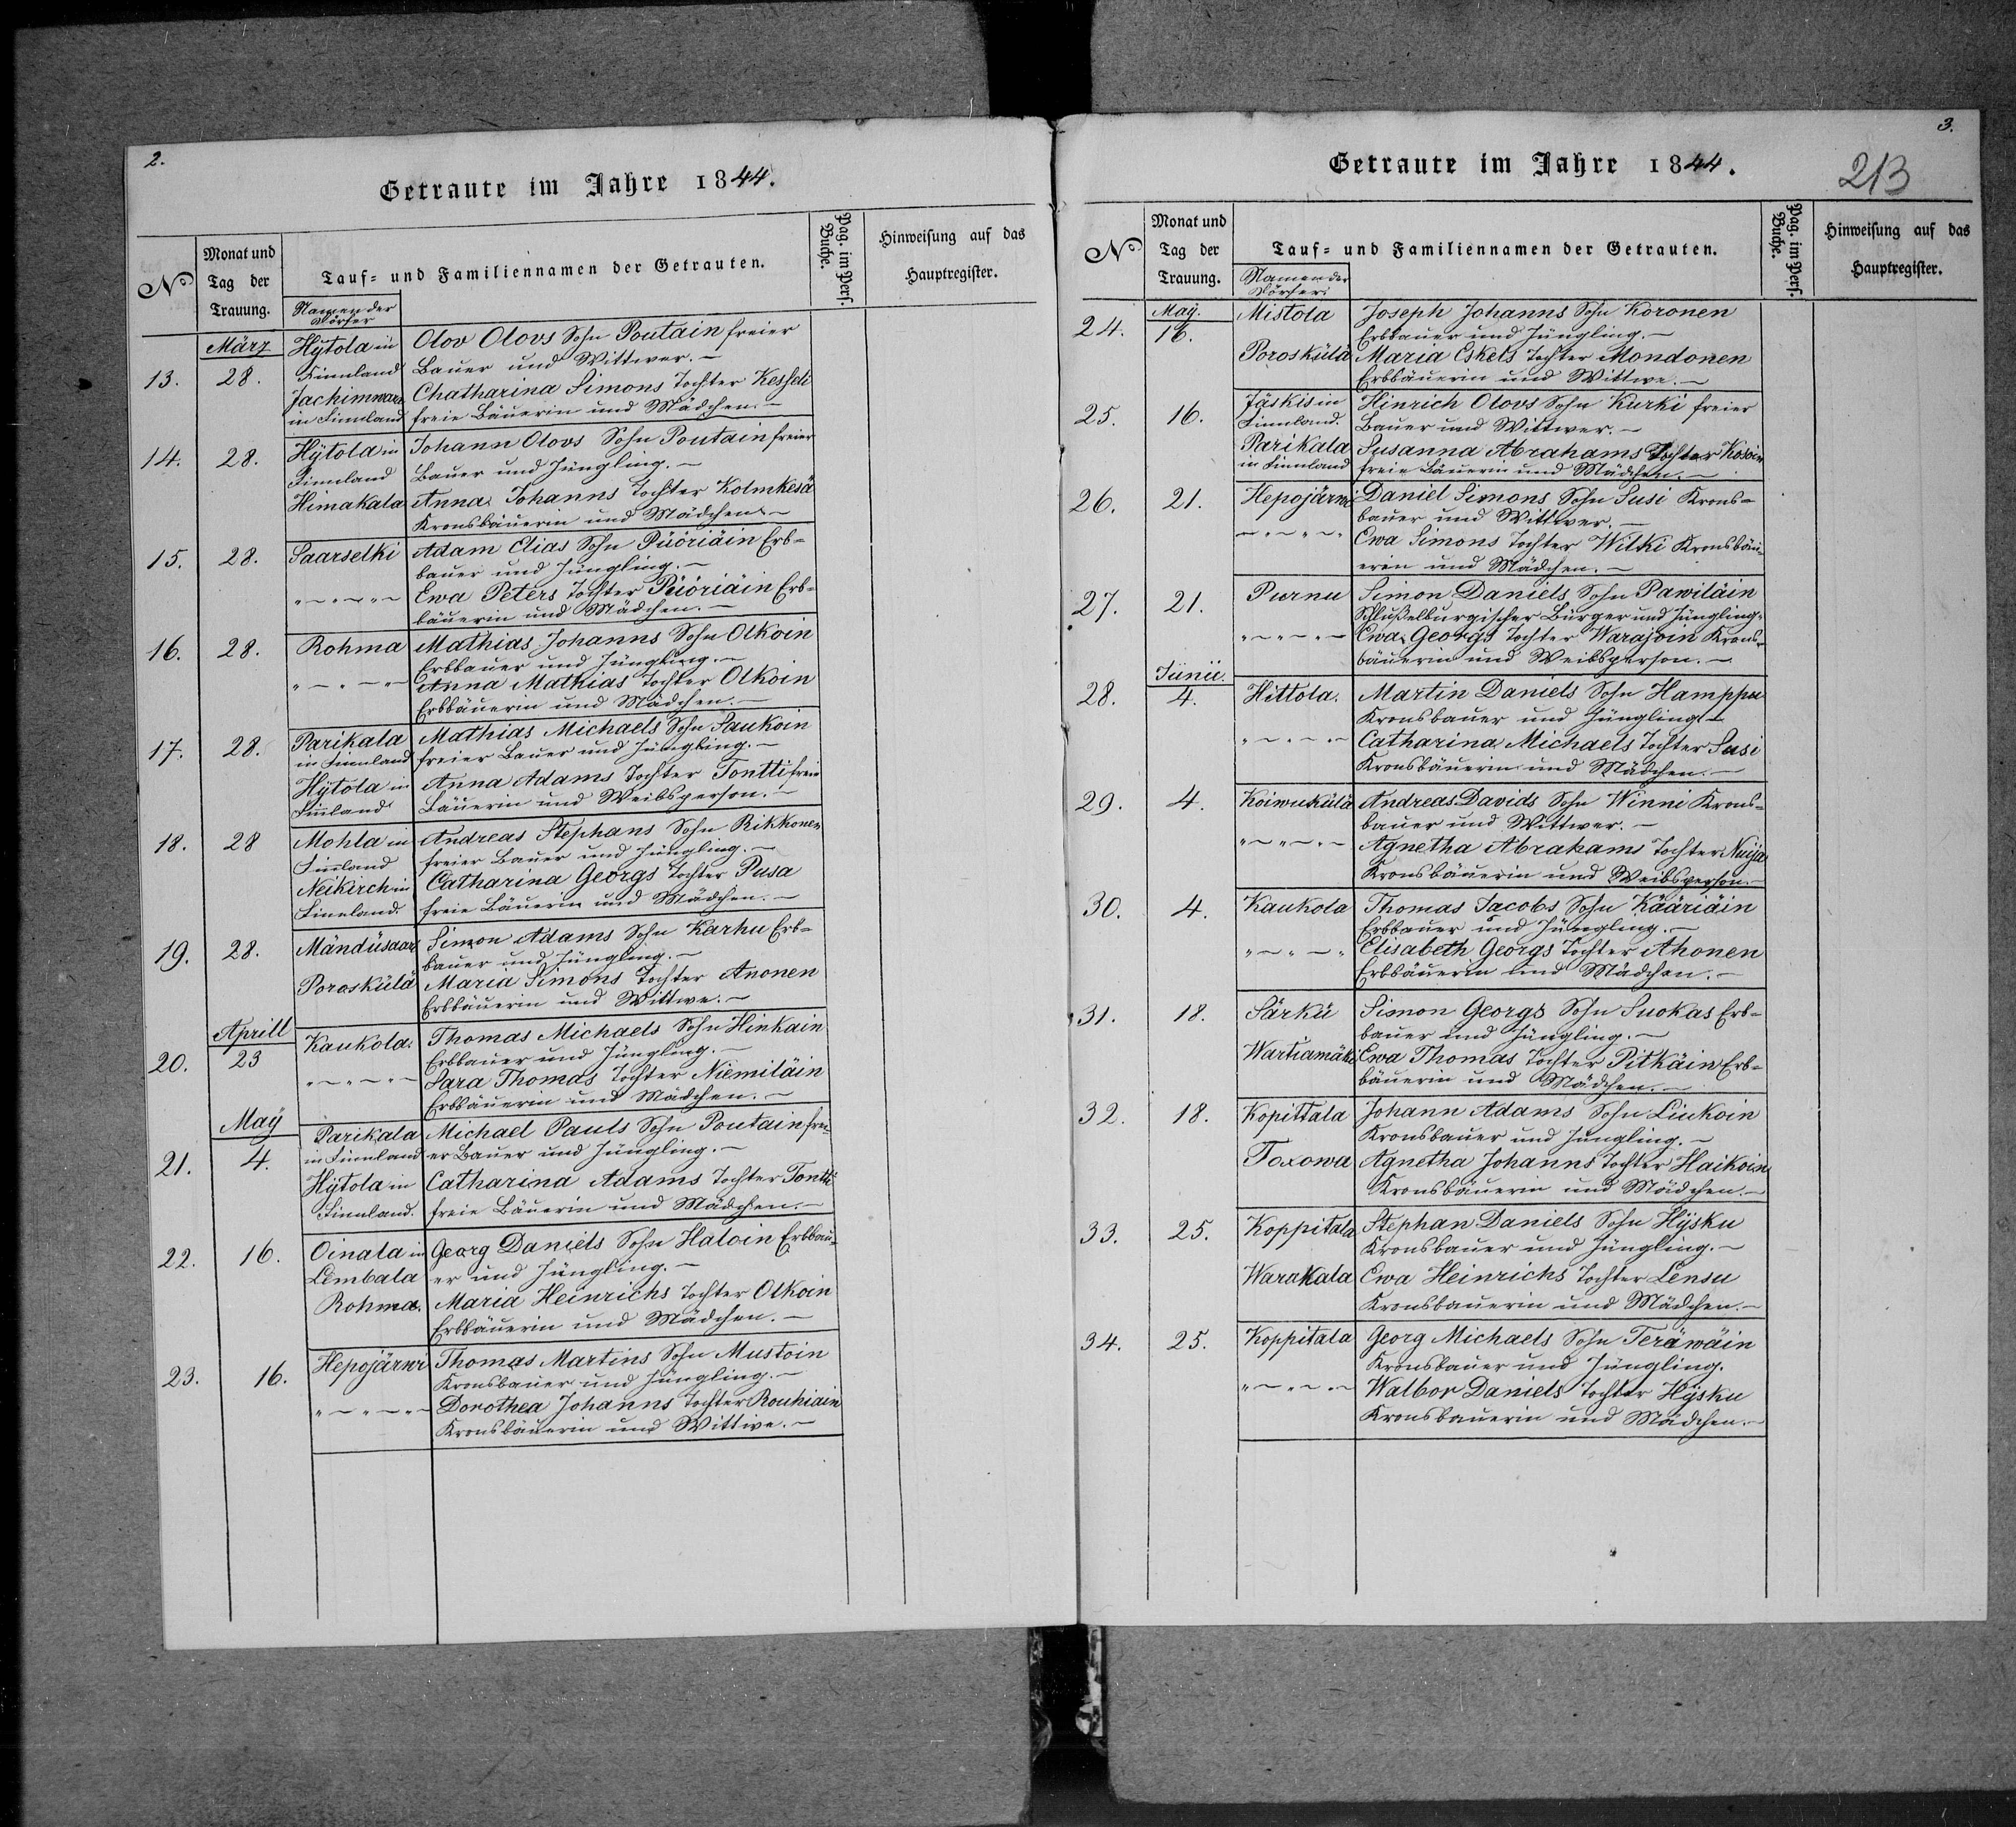 2.
Getraute im Jahre 1844.
No
Monat und
Tag der
Trauung.
Tauf- und Familiennamen der Getrauten.
Namen der
Dörfer
Pag. im Pers.
Buche.
Hinweisung auf das
Hauptregister.
März
13. 28. Hÿtola in Olov Olovs Sohn Poutain freier
Finnland Bauer und Wittwer. –
Jachimwara Chatharina Simons Tochter Kesseli
in Finnland freie Bäuerin und Mädchen. –
14. 28. Hÿtola in Johann Olovs Sohn Poutain freier
Finnland Bauer und Jüngling. –
Himakala Anna Johanns Tochter Kolmkesä
Kronsbäuerin und Mädchen. –
15. 28. Saarselki Adam Elias Sohn Püöriäin Erb-
bauer und Jüngling. –
" – " – " – Ewa Peters Tochter Püöriäin Erb-
bäuerin und Mädchen. –
16. 28. Rohma Mathias Johanns Sohn Olkoin
Erbbauer und Jüngling. –
" – " – " – Anna Mathias Tochter Olkoin
Erbbäuerin und Mädchen. –
17. 28. Parikala Mathias Michaels Sohn Saukoin
in Finnland freier Bauer und Jüngling. –
Hÿtola in Anna Adams Tochter Tontti freie
Finnland Bäuerin und Weibsperson. –
18. 28 Mohla in Andreas Stephans Sohn Rikkonen
Finnland freier Bauer und Jüngling. –
Neikirch in Catharina Georgs Tochter Pusa
Finnland. freie Bäuerin und Mädchen. –
19. 28. Mändüsaar Simon Adams Sohn Karhu Erb-
bauer und Jüngling. –
Poroskülä Maria Simons Tochter Anonen
Erbbäuerin und Wittwe. –
Aprill
20. 23 Kaukola. Thomas Michaels Sohn Hinkain
Erbbauer und Jüngling. –
" – " – " – Sara Thomas Tochter Niemiläin
Erbbäuerin und Mädchen. –
Maÿ
21. 4. Parikala Michael Pauls Sohn Poutain frei-
in Finnland er Bauer und Jüngling. –
Hÿtola in Catharina Adams Tochter Tontti
Finnland. freie Bäuerin und Mädchen. –
22. 16. Oinala in Georg Daniels Sohn Haloin Erbbau-
Lembala er und Jüngling. –
Rohma. Maria Heinrichs Tochter Olkoin
Erbbäuerin und Mädchen. –
23. 16. Hepojärwi Thomas Martins Sohn Mustoin
Kronsbauer und Jüngling. –
" – " – " – Dorothea Johanns Tochter Rouhiain
Kronsbäuerin und Wittwe. –
3.
213
Getraute im Jahre 1844.
No
Monat und
Tag der
Trauung.
Tauf- und Familiennamen der Getrauten.
Namen der
Dörfer.
Pag. im Pers.
Buche.
Hinweisung auf das
Hauptregister.
Maÿ.
24. 16. Mistola Joseph Johanns Sohn Koronen
Erbbauer und Jüngling. –
Poroskülä Maria Eskels Tochter Mondonen
Erbbäuerin und Wittwe. –
25. 16. Jäskis in Hinrich Olovs Sohn Kurki freier
Finnland. Bauer und Wittwer. –
Parikala Susanna Abrahams Tochter Kosoin
in Finnland freie Bäuerin und Mädchen. –
26. 21. Hepojärwi Daniel Simons Sohn Susi Krons-
bauer und Wittwer. –
" – " – " – Ewa Simons Tochter Wilki Kronsbäu-
erin und Mädchen. –
27. 21. Purnu Simon Daniels Sohn Pawiläin
Schlüßelburgischer Bürger und Jüngling.
" – " – " – Ewa Georgs Tochter Warajoin Krons-
bäuerin und Weibsperson. –
Junii.
28. 4. Hittola. Martin Daniels Sohn Hamppu
Kronsbauer und Jüngling –
" – " – " – Catharina Michaels Tochter Susi
Kronsbäuerin und Mädchen. –
29. 4. Koiwukülä Andreas Davids Sohn Winni Krons-
bauer und Wittwer. –
" – " – " – Agnetha Abrahams Tochter Nuija
Kronsbäuerin und Weibsperson. –
30. 4. Kaukola Thomas Jacobs Sohn Kääriäin
Erbbauer und Jüngling. –
" – " – " Elisabeth Georgs Tochter Ahonen
Erbbäuerin und Mädchen. –
31. 18. Särkü Simon Georgs Sohn Suokas Erb-
bauer und Jüngling. –
Wartiamäki Ewa Thomas Tochter Pitkäin Erb-
bäuerin und Mädchen. –
32. 18. Kopittala Johann Adams Sohn Liukoin
Kronsbauer und Jüngling. –
Toxowa Agnetha Johanns Tochter Haikoin
Kronsbäuerin und Mädchen. –
33. 25. Koppitala Stephan Daniels Sohn Hÿsku
Kronsbauer und Jüngling. –
Warakala Ewa Heinrichs Tochter Lensu
Kronsbäuerin und Mädchen. –
34. 25. Koppitala Georg Michaels Sohn Teräwäin
Kronsbauer und Jüngling.
" – " – " – Walbor Daniels Tochter Hÿsku
Kronsbäuerin und Mädchen. –